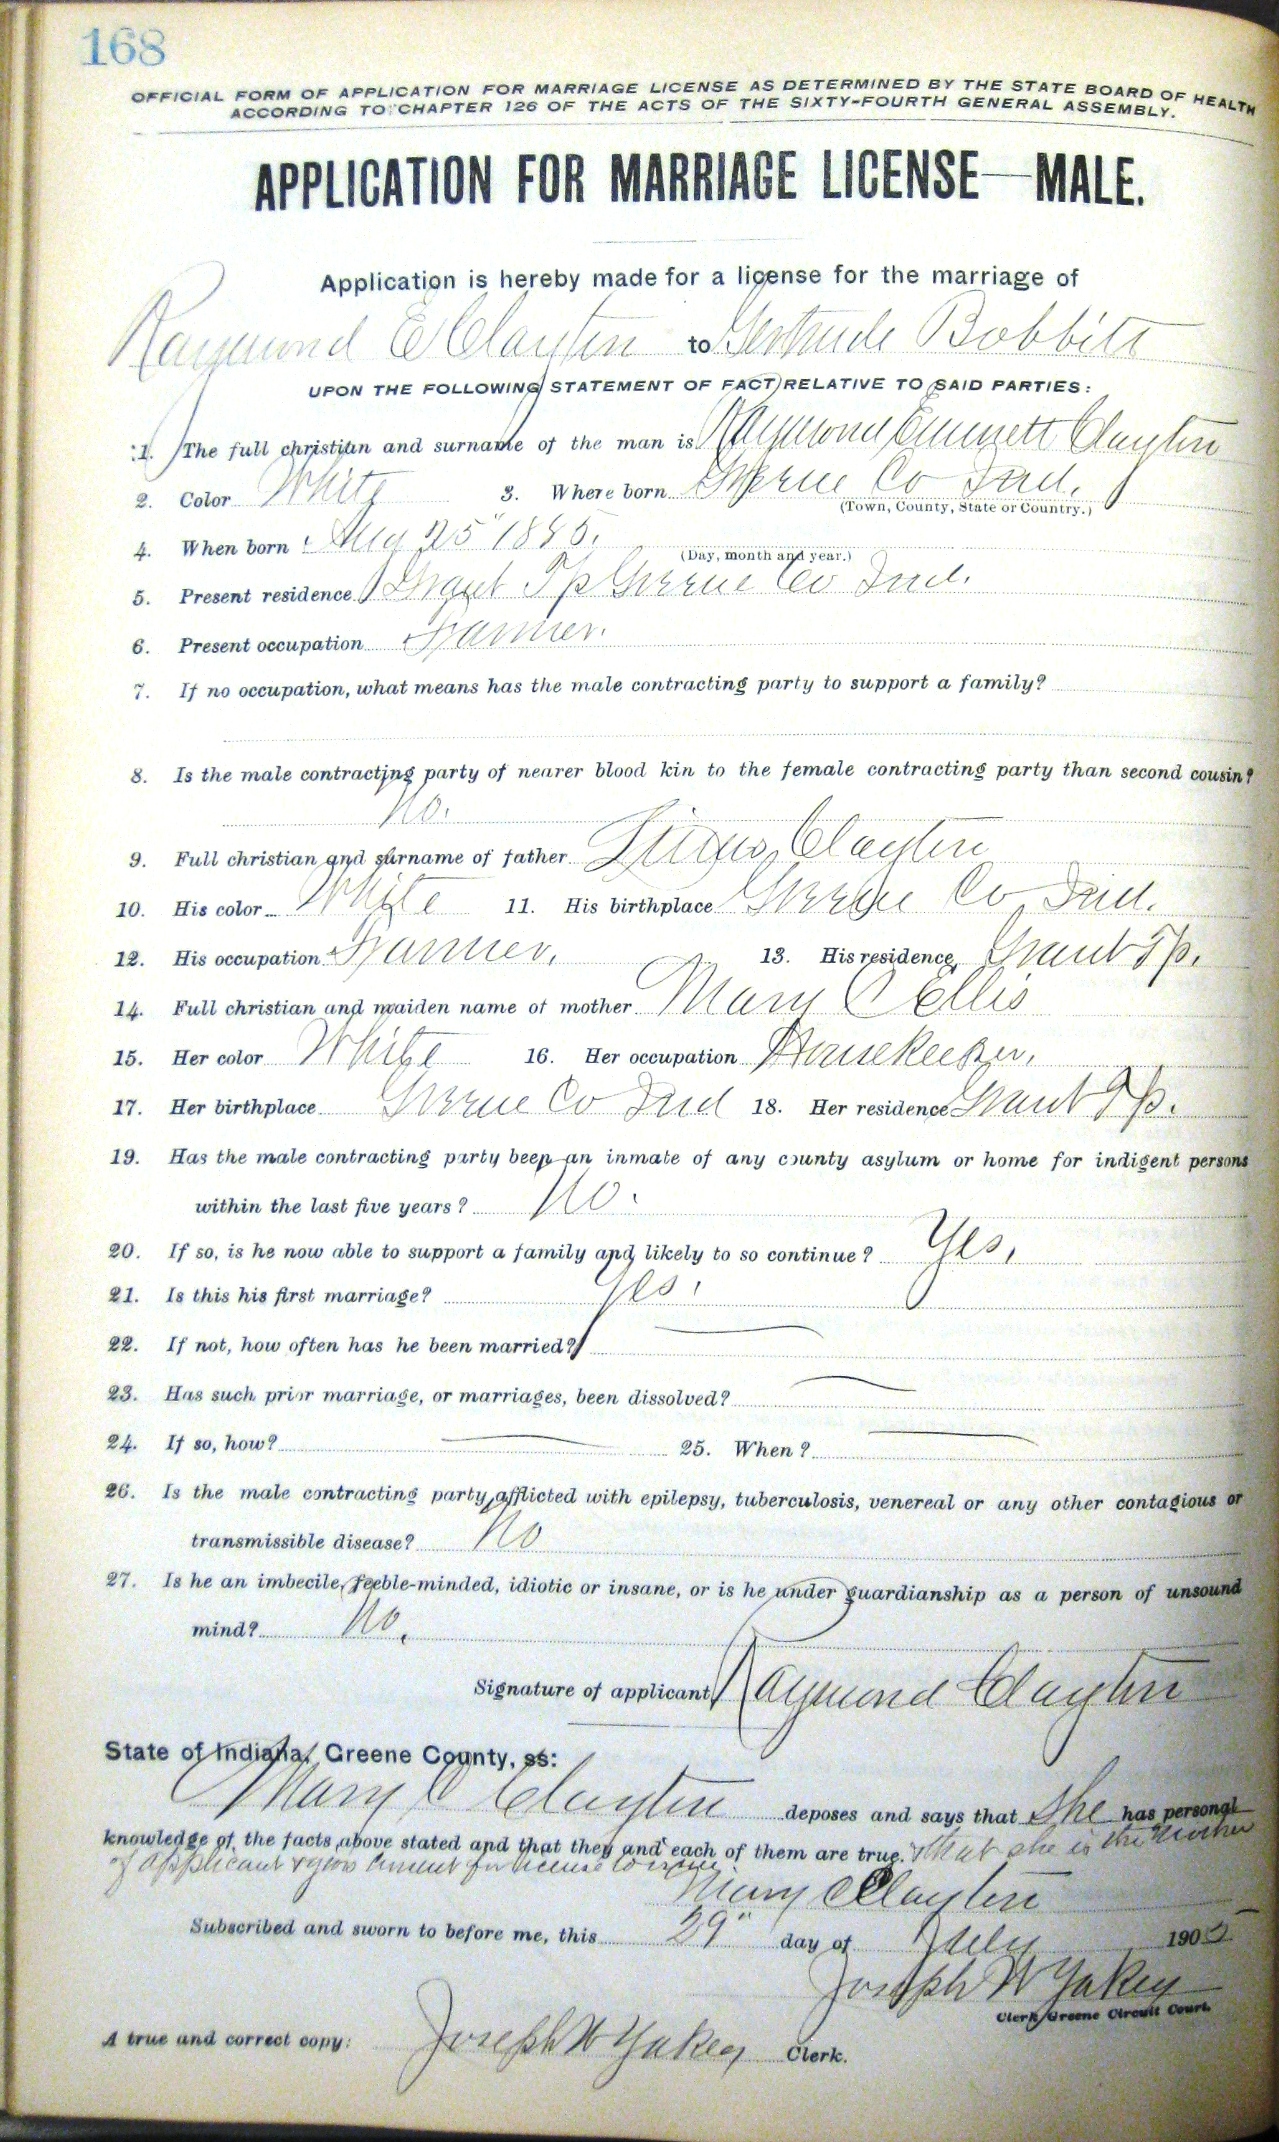 168
OFFICIAL FORM OF APPLICATION FOR MARRIAGE LICENSE AS DETERMINED BY THE STATE BOARD OF HEALTH
ACCORDING TO CHAPTER 126 OF THE ACTS OF THE SIXTY-FOURTH GENERAL ASSEMBLY.
APPLICATION FOR MARRIAGE LICENSE—MALE.
Application is hereby made for a license for the marriage of
Raymond E Clayton to Gertrude Bobbitt
UPON THE FOLLOWING STATEMENT OF FACT RELATIVE TO SAID PARTIES:
1. The full christian and surname of the man is Raymond Emmett Clayton
2. Color White 3. Where born Greene Co Ind.
(Town, County, State or Country.)
4. When born Aug 25" 1885.
(Day, month and year.)
5. Present residence Grant Tp Greene Co Ind.
6. Present occupation Farmer.
7. If no occupation, what means has the male contracting party to support a family?
8. Is the male contracting party of nearer blood kin to the female contracting party than second cousin?
No.
9. Full christian and surname of father Clayton
10. His color White 11. His birthplace Greene Co Ind.
12. His occupation Farmer. 13. His residence Grant Tp.
14. Full christian and maiden name of mother Mary C Ellis
15. Her color White 16. Her occupation Housekeeper.
17. Her birthplace Greene Co Ind 18. Her residence Grant Tp.
19. Has the male contracting party been an inmate of any county asylum or home for indigent persons
within the last five years? No.
20. If so, is he now able to support a family and likely to so continue? Yes,
21. Is this his first marriage? Yes.
22. If not, how often has he been married?
23. Has such prior marriage, or marriages, been dissolved?
24. If so, how? 25. When?
26. Is the male contracting party afflicted with epilepsy, tuberculosis, venereal or any other contagious or
transmissible disease? No
27. Is he an imbecile, feeble-minded, idiotic or insane, or is he under guardianship as a person of unsound
mind? No.
Signature of applicant Raymond Clayton
State of Indiana, Greene County, ss:
Mary C Clayton deposes and says that She has personal
knowledge of the facts above stated and that they and each of them are true. & that she is the Mother
of applicant & gives consent for license to issue.
Mary C Clayton
Subscribed and sworn to before me, this 29" day of July 1905
Joseph W Yakey
Clerk Greene Circuit Court.
A true and correct copy: Joseph W Yakey Clerk.